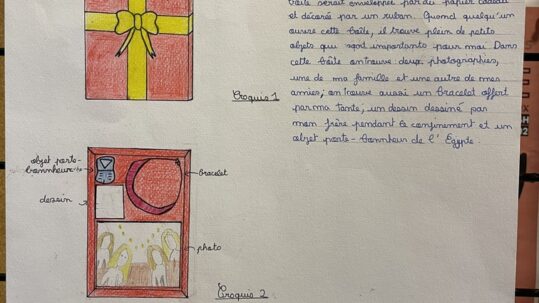 boîte serait enveloppée par du papier cadeau
et décorée par un ruban. Quand quelqu'un
ouvre cette boîte, il trouve plein de petits
objets qui sont importants pour moi. Dans
cette boîte on trouve deux photographies,
une de ma famille et une autre de mes
amies; on trouve aussi un bracelet offert
par ma tante; un dessin dessiné par
mon frère pendant le confinement et un
objet porte-bonheur de l'Égypte.
Croquis 1
objet porte-
bonnheur
bracelet
dessin
photo
Croquis 2